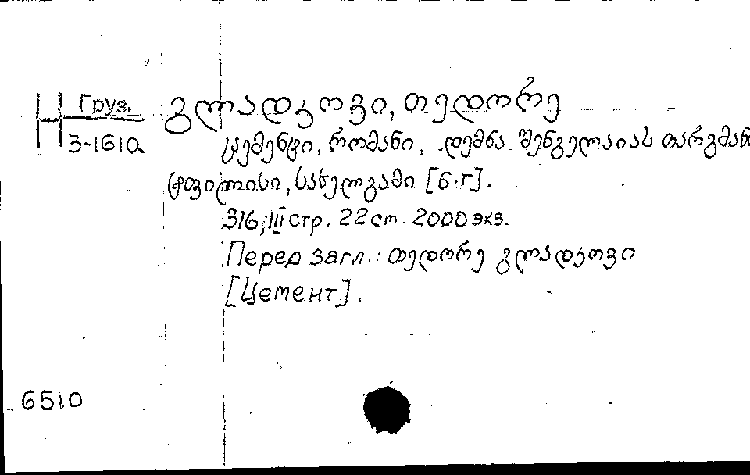 Н Груз. გლადკოვი, თედორე
3-161а ცემენტი, რომანი, დემნა შენგელაიას თარგმან
ტფილისი, სახელგამი [б.г].
316, III стр. 22 см. 2000 экз.
Перед загл.: თედორე გლადკოვი
[Цемент].
6510